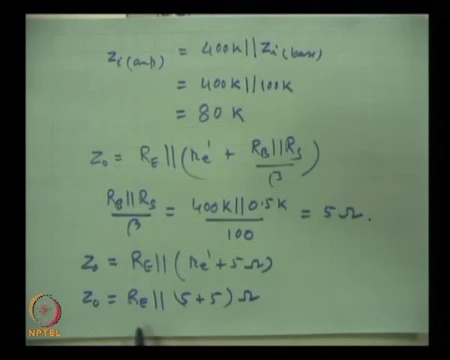 Zi(amp) = 400K || Zi(base)
= 400K || 100K
= 80 K
Zo = RE || (re' + RB||RS / β)
RB||RS / β = 400K || 0.5K / 100 = 5 Ω.
Zo = RE || (re' + 5Ω)
Zo = RE || (5 + 5) Ω
NPTEL